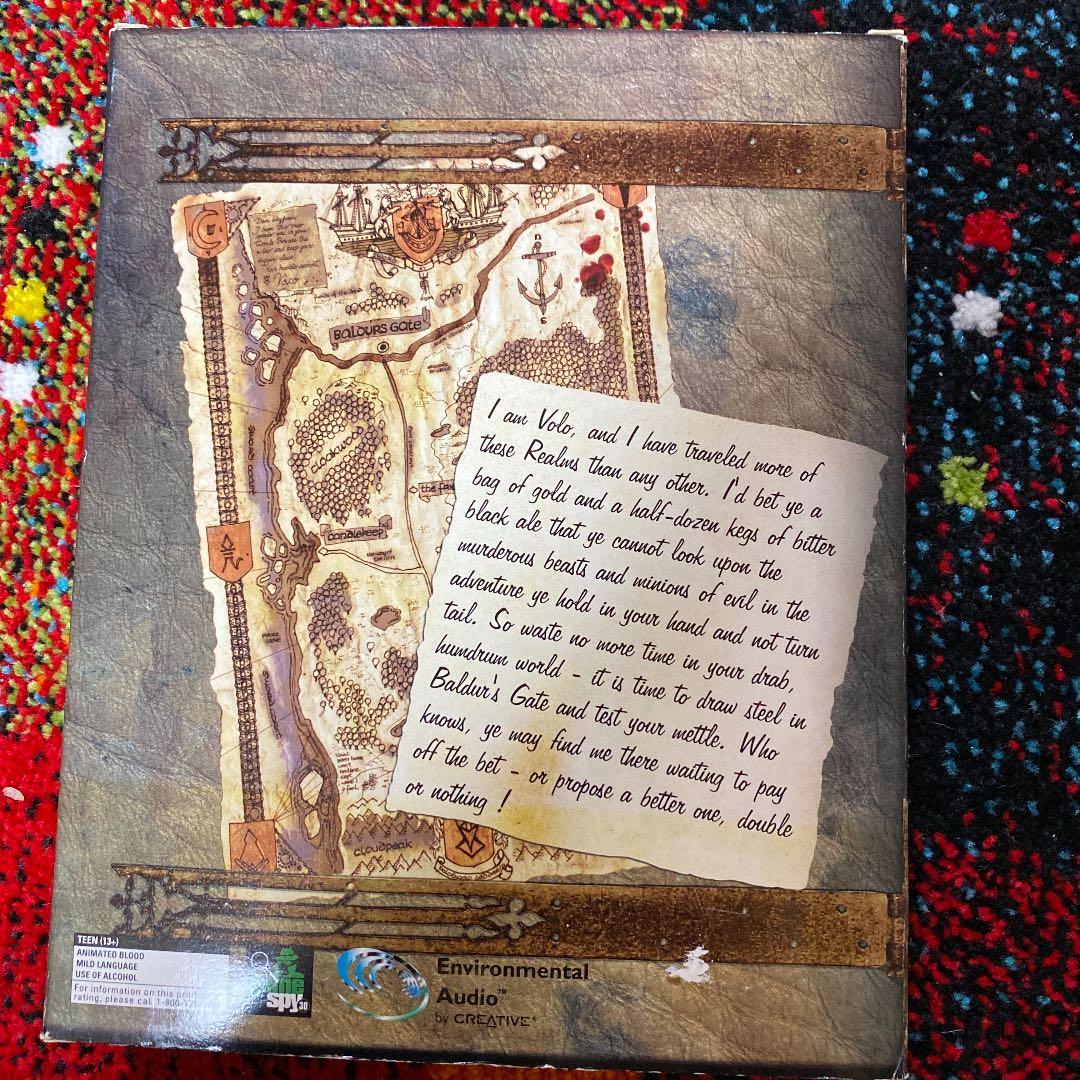 BALDURS GATE
CLOAKWOOD
the frie
candlekeep
I am Volo, and I have traveled more of
these Realms than any other. I'd bet ye a
bag of gold and a half-dozen kegs of bitter
black ale that ye cannot look upon the
murderous beasts and minions of evil in the
adventure ye hold in your hand and not turn
tail. So waste no more time in your drab,
humdrum world - it is time to draw steel in
Baldur's Gate and test your mettle. Who
knows, ye may find me there waiting to pay
off the bet - or propose a better one, double
or nothing !
cloudpeak
TEEN (13+)
ANIMATED BLOOD
MILD LANGUAGE
USE OF ALCOHOL
For information on this
rating, please call 1-800-
spy 3D
Environmental
Audio™
by CREATIVE®